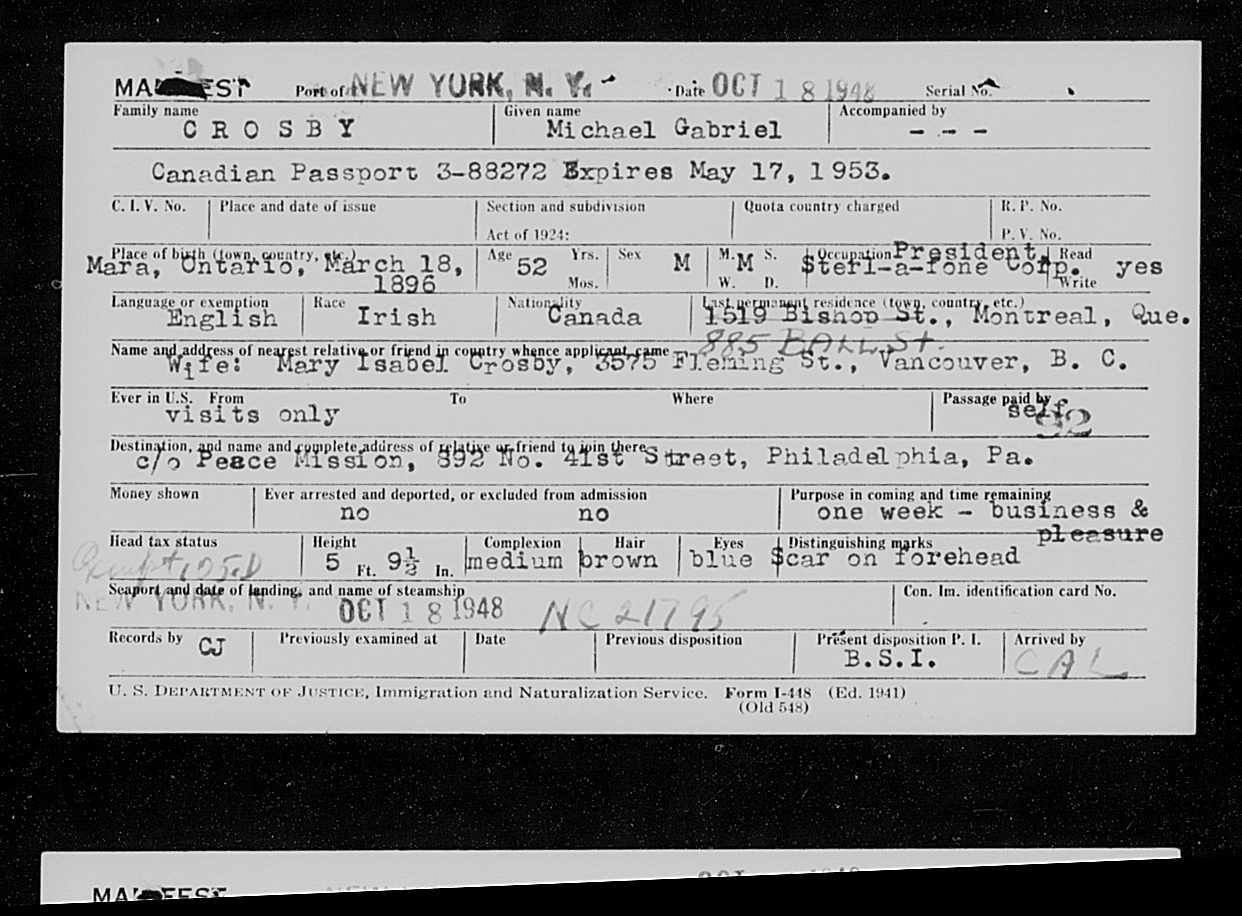 MANIFEST Port of NEW YORK, N. Y. Date OCT 18 1948 Serial No.
Family name Given name Accompanied by
CROSBY Michael Gabriel - - -
Canadian Passport 3-88272 Expires May 17, 1953.
C. I. V. No. Place and date of issue Section and subdivision Quota country charged R. P. No.
Act of 1924: P. V. No.
Place of birth (town, country, etc.) Age Yrs. Sex M. S. Occupation President, Read
Mara, Ontario, March 18, 52 M M Steri-a-fone Corp. yes
1896 Mos. W. D. Write
Language or exemption Race Nationality Last permanent residence (town, country, etc.)
English Irish Canada 1519 Bishop St., Montreal, Que.
885 BALL St.
Name and address of nearest relative or friend in country whence applicant came
Wife: Mary Isabel Crosby, 3575 Fleming St., Vancouver, B. C.
Ever in U.S. From To Where Passage paid by
visits only self
92
Destination, and name and complete address of relative or friend to join there
c/o Peace Mission, 892 No. 41st Street, Philadelphia, Pa.
Money shown Ever arrested and deported, or excluded from admission Purpose in coming and time remaining
no no one week - business &
pleasure
Head tax status Height Complexion Hair Eyes Distinguishing marks
5 Ft. 9½ In. medium brown blue Scar on forehead
Seaport and date of landing, and name of steamship Con. Im. identification card No.
NEW YORK, N. Y. OCT 18 1948 NC 21795
Records by Previously examined at Date Previous disposition Present disposition P. I. Arrived by
CJ B.S.I. CAL
U. S. DEPARTMENT OF JUSTICE, Immigration and Naturalization Service. Form I-448 (Ed. 1941)
(Old 548)
MANIFEST